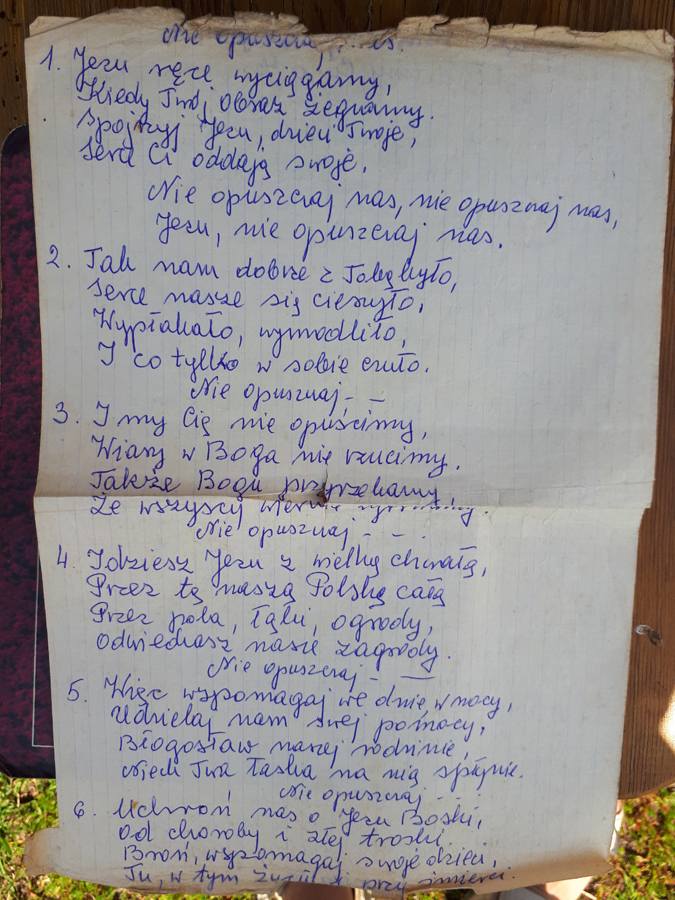 Nie opuszczaj,
1. Jezu ręce wyciągamy,
Kiedy Twój obraz żegnamy.
Spojrzyj Jezu, dzieci Twoje,
Serca Ci oddają swoje.
Nie opuszczaj nas, nie opuszczaj nas,
Jezu, nie opuszczaj nas.
2. Tak nam dobrze z Tobą było,
Serce nasze się cieszyło,
Wypłakało, wymodliło,
I co tylko w sobie czuło.
Nie opuszczaj - -
3. I my Cię nie opuścimy,
Wiary w Boga nie rzucimy.
Także Bogu przyrzekamy,
Że wszyscy
Nie opuszczaj - - .
4. Idziesz Jezu z wielką chwałą,
Przez tą naszą Polskę całą
Przez pola, łąki, ogrody,
Odwiedzasz nasze zagrody.
Nie opuszczaj - —
5. Więc wspomagaj we dnie, w nocy,
Udzielaj nam swej pomocy,
Błogosław naszej rodzinie,
Niech Twa łaska na nią spłynie.
Nie opuszczaj - -
6. Uchroń nas o Jezu Boski,
Od choroby i złej troski.
Broń, wspomagaj swoje dzieci,
Tu, w tym życiu i przy śmierci.